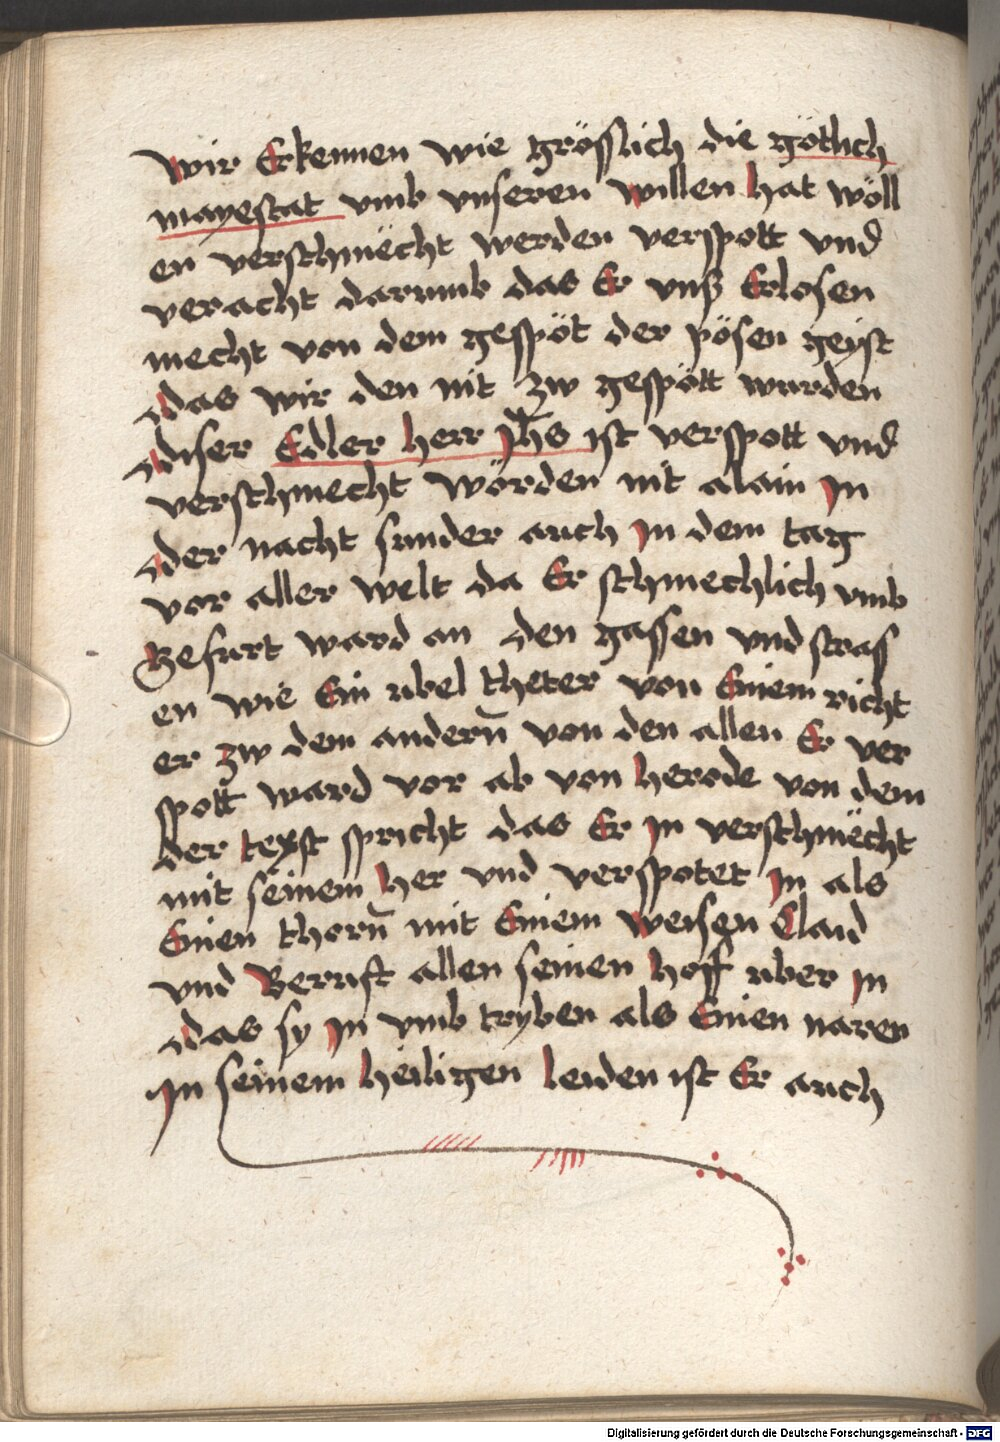 wir Erkennen wie grösslich die götlich
mayestat vmb vnseren willen hat wöll
en verschmëcht werden verspott vnd
veracht darumb das Er vnß Erlosen
mecht von dem gespöt der pösen geist
das wir den nit zw gespött wurden
diser Edler herr jhs ist verspott vnd
verschmecht wörden nit alain jn
der nacht sunder auch jn dem tag
vor aller welt da Er schmechlich vmb
gefurt ward an den gassen vnd stras
en wie Ein ubel theter von Einem richt
er zw dem andern̄ von den allen Er ver
spott ward vor ab von herode von dem
der text spricht das Er jn verschmëcht
mit seinem her vnd verspotet jn als
Einen thorn̄ mit Einem weisen Claid
vnd Beruft allen seinen hoff uber jn
das sy jn vmb tryben als Einen naren
jn seinem heiligen leiden ist Er auch
Digitalisierung gefördert durch die Deutsche Forschungsgemeinschaft - DFG